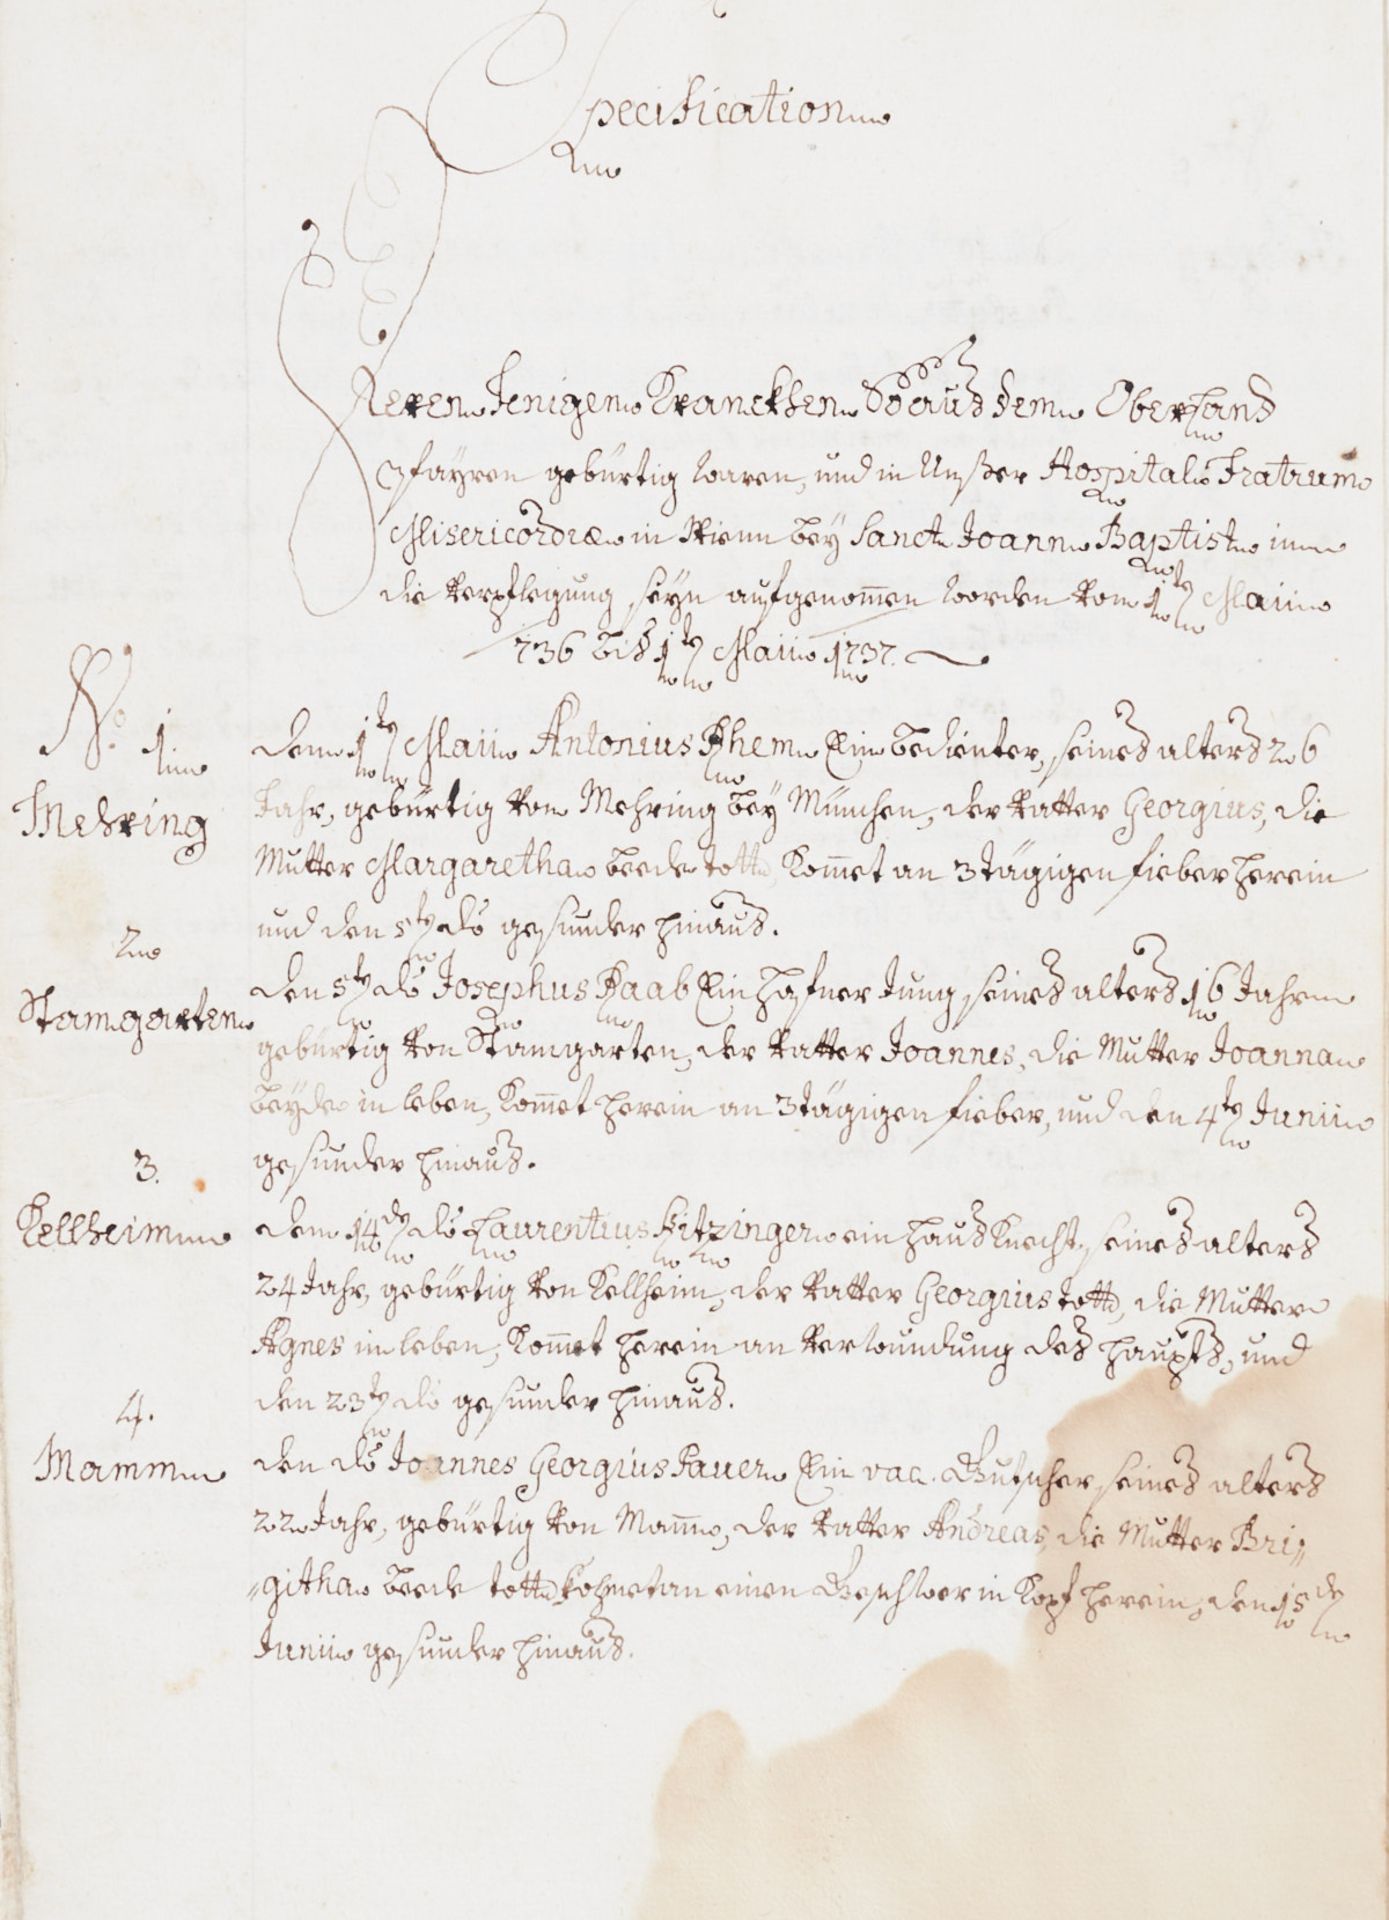 Specification
Deren Jenigen Krancken So aus dem Oberland
Bayren gebürtig waren, und in Unßer Hospital Fratrum
Misericordiæ in Wienn bey Sanct Joann Baptist in
die Verpflegung seyn aufgenom̅en worden von 1ten Maii
736 bis 1ten Maii 1737.
No. 1
Mehring
den 1ten Maii Antonius Rhem Ein bedienter, seines alters 26
Jahr, gebürtig von Mehring bey München, der Vatter Georgius, die
Mutter Margaretha beede todt, Kom̅et an 3tägigen fieber herein
und den 5ten do gesunder hinaus.
2
Stamgarten
den 5ten do Josephus Raab Ein Hafner Jung seines alters 16 Jahr
gebürtig von Stamgarten, der Vatter Joannes, die Mutter Joanna
beyde in leben, Kom̅et herein an 3tägigen fieber, und den 4ten Junii
gesunder hinaus.
3.
Kellheim
den 14den do Laurentius Hitzinger ein Haus Knecht, seines alters
24 Jahr, gebürtig von Kellheim, der Vatter Georgius todt, die Mutter
Agnes im leben, Kom̅et herein an Verwundung des haupts, und
den 23ten do gesunder hinaus.
4.
Mamm
den do Joannes Georgius Pauer Ein vac. Gutscher, seines alters
22 Jahr, gebürtig von Mam̅, der Vatter Andreas, die Mutter Bri„
„githa beede todt Kom̅et an einen Geschwer in Kopf herein, den 15den
Junii gesunder hinaus.